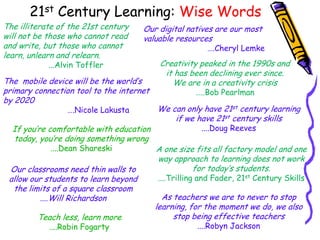 21st Century Learning: Wise Words
The illiterate of the 21st century
will not be those who cannot read
and write, but those who cannot
learn, unlearn and relearn.
....Alvin Toffler
The mobile device will be the world's
primary connection tool to the internet
by 2020
....Nicole Lakusta
If you're comfortable with education
today, you're doing something wrong
....Dean Shareski
Our classrooms need thin walls to
allow our students to learn beyond
the limits of a square classroom
....Will Richardson
Teach less, learn more
....Robin Fogarty
Our digital natives are our most
valuable resources
....Cheryl Lemke
Creativity peaked in the 1990s and
it has been declining ever since.
We are in a creativity crisis
....Bob Pearlman
We can only have 21st century learning
if we have 21st century skills
....Doug Reeves
A one size fits all factory model and one
way approach to learning does not work
for today's students.
....Trilling and Fader, 21st Century Skills
As teachers we are to never to stop
learning, for the moment we do, we also
stop being effective teachers
....Robyn Jackson